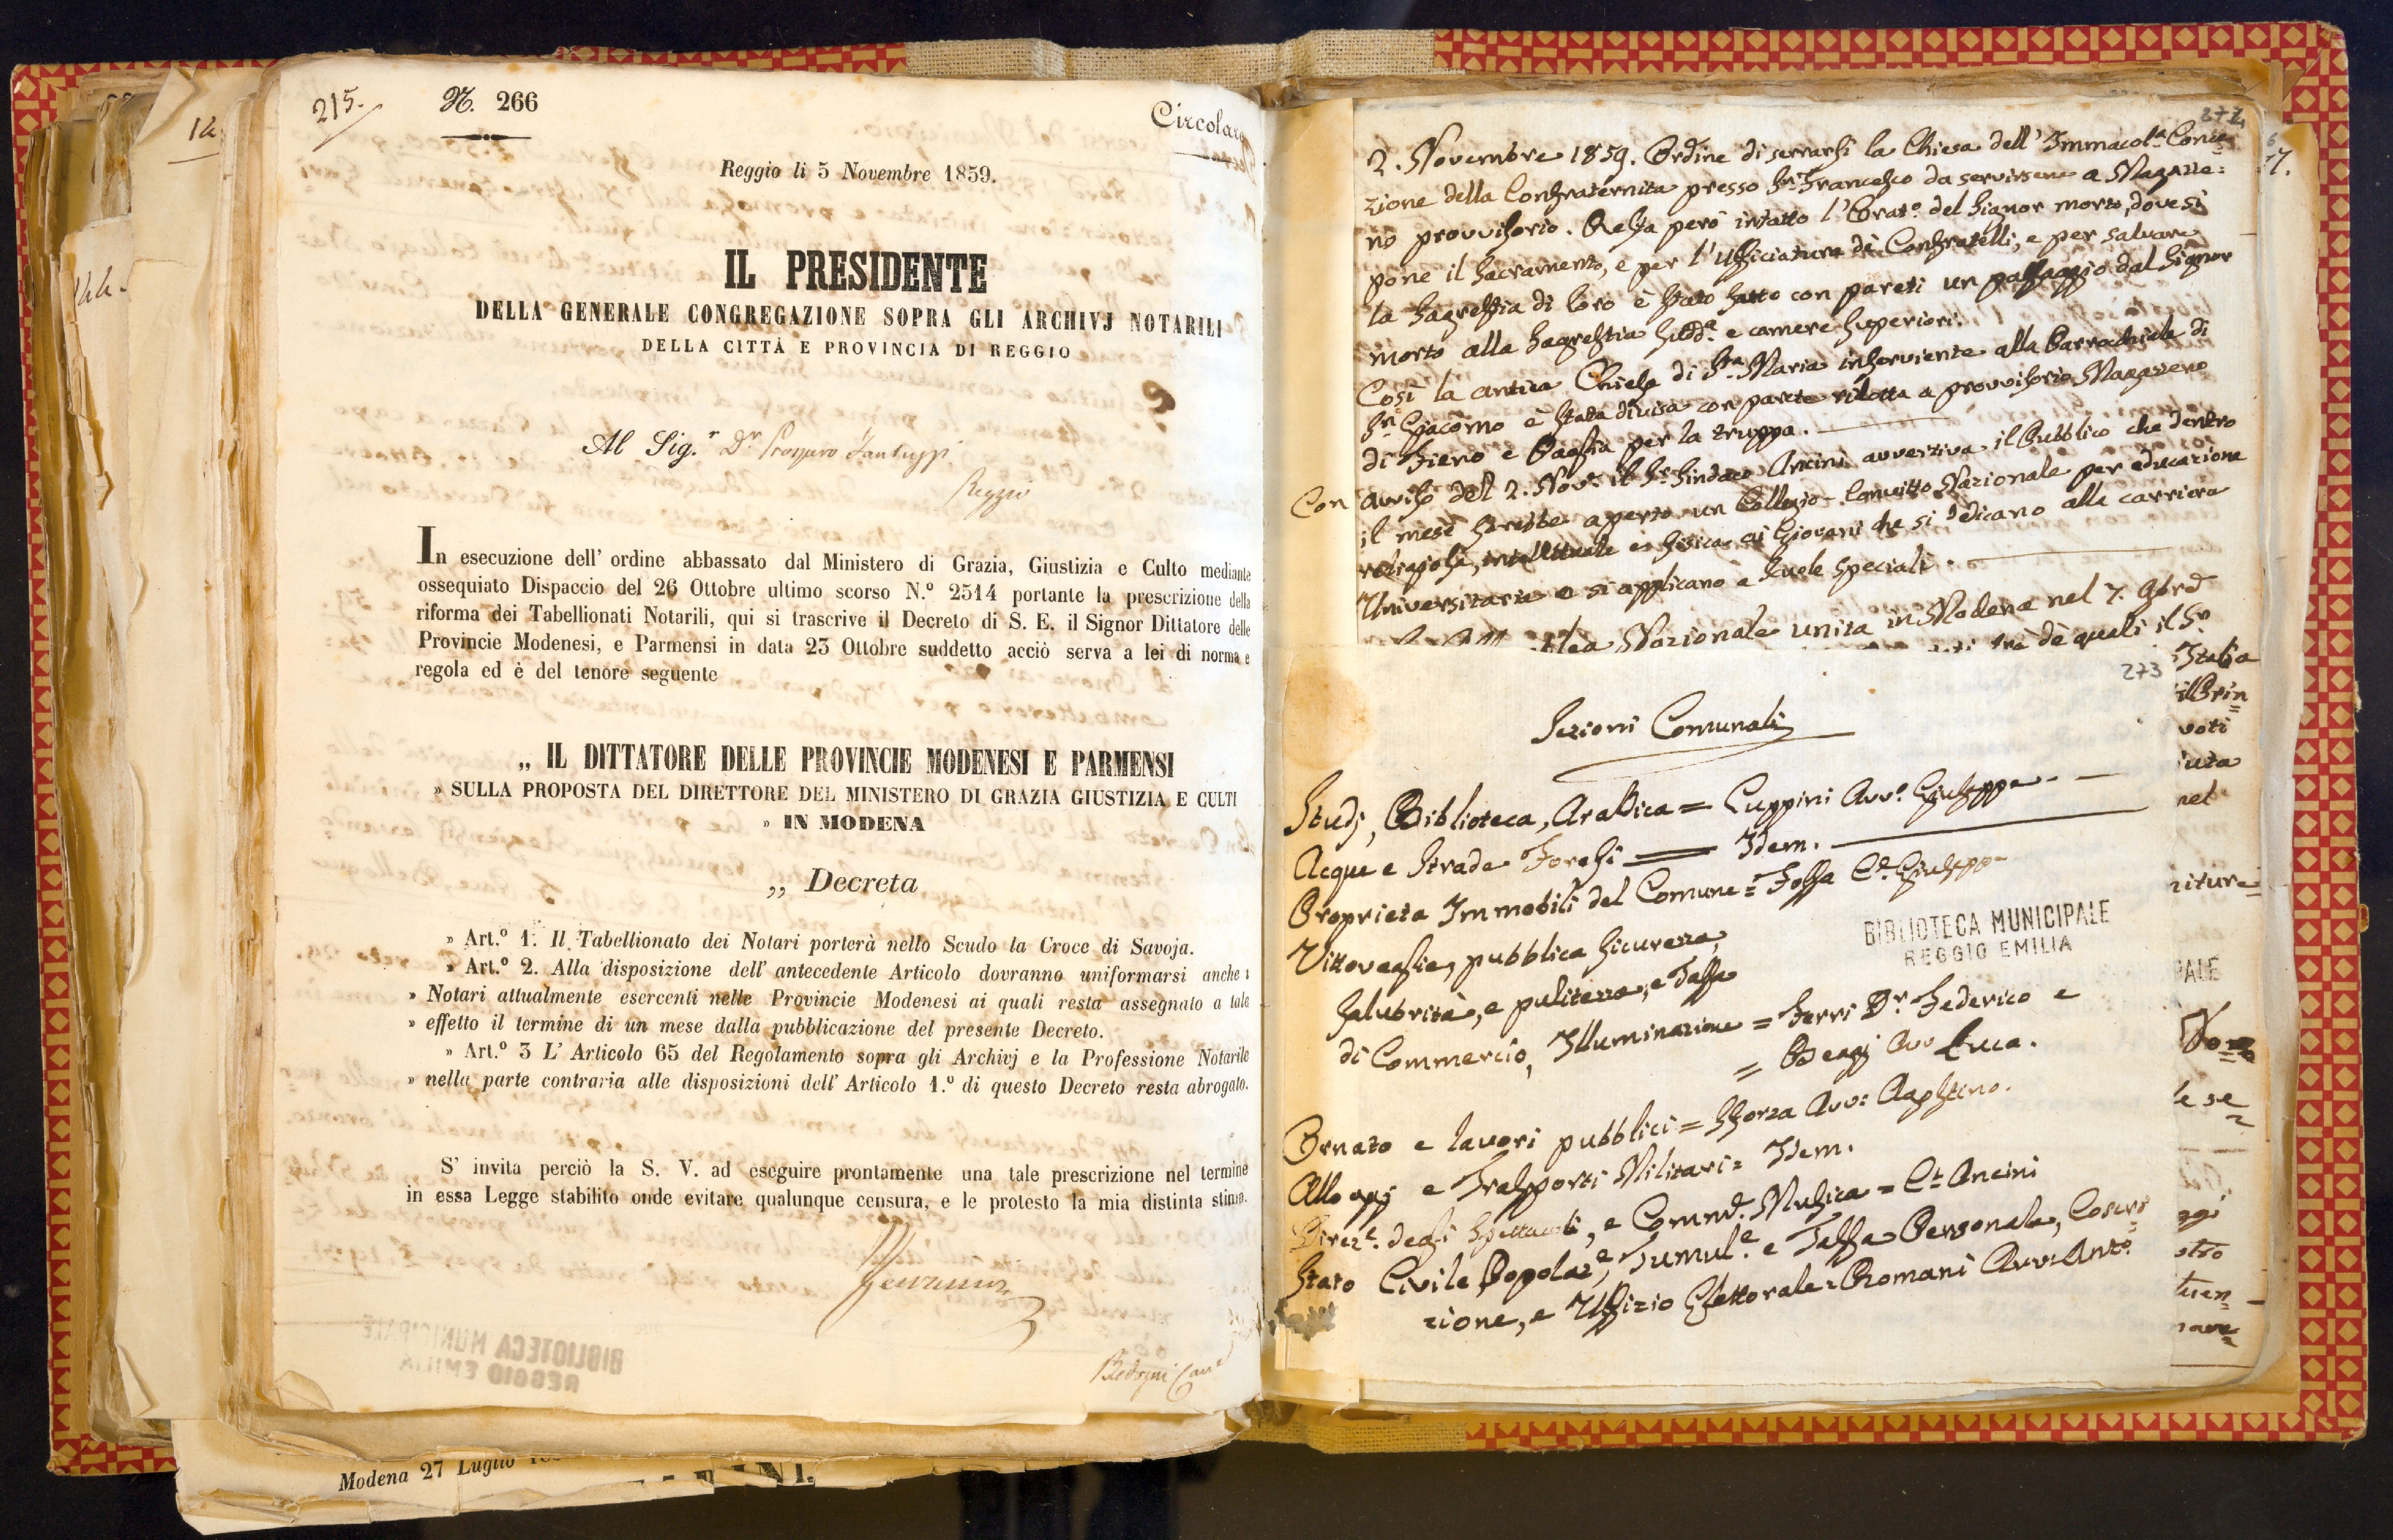 215.
N. 266
Circolare
Reggio li 5 Novembre 1859.
IL PRESIDENTE
DELLA GENERALE CONGREGAZIONE SOPRA GLI ARCHIVJ NOTARILI
DELLA CITTÀ E PROVINCIA DI REGGIO
Al Sig.r Dr Prospero Fantuzzi
Reggio
In esecuzione dell' ordine abbassato dal Ministero di Grazia, Giustizia e Culto mediante
ossequiato Dispaccio del 26 Ottobre ultimo scorso N.º 2514 portante la prescrizione della
riforma dei Tabellionati Notarili, qui si trascrive il Decreto di S. E. il Signor Dittatore delle
Provincie Modenesi, e Parmensi in data 23 Ottobre suddetto acciò serva a lei di norma e
regola ed è del tenore seguente
„ IL DITTATORE DELLE PROVINCIE MODENESI E PARMENSI
» SULLA PROPOSTA DEL DIRETTORE DEL MINISTERO DI GRAZIA GIUSTIZIA E CULTI
» IN MODENA
„ Decreta
» Art.º 1. Il Tabellionato dei Notari porterà nello Scudo la Croce di Savoja.
» Art.º 2. Alla disposizione dell' antecedente Articolo dovranno uniformarsi anche i
» Notari attualmente esercenti nelle Provincie Modenesi ai quali resta assegnato a tale
» effetto il termine di un mese dalla pubblicazione del presente Decreto.
» Art.º 3 L' Articolo 65 del Regolamento sopra gli Archivj e la Professione Notarile
» nella parte contraria alle disposizioni dell' Articolo 1.º di questo Decreto resta abrogato.
S' invita perciò la S. V. ad eseguire prontamente una tale prescrizione nel termine
in essa Legge stabilito onde evitare qualunque censura, e le protesto la mia distinta stima.
BIBLIOTECA MUNICIPALE
REGGIO EMILIA
Modena 27 Luglio
272
2. Novembre 1859. Ordine di serrarsi la Chiesa dell' Immacol.a Conce=
zione della Confraternita presso Sn Francesco da servirsene a Magazze=
no provvisorio. Resta però intatto l'Orat.o del Signor morto, dove si
pone il Sacramento, e per l'Ufficiatura dè Confratelli, e per salvare
la Sagrestia di loro è stato fatto con pareti un passaggio dal Signor
morto alla Sagrestia sudd.a e camere superiori.
Così la antica Chiesa di Sta Maria inserviente alla Parrochiale di
Sn Giacomo è stata divisa con parete ridotta a provvisorio Magazzeno
di Fieno e Paglia per la truppa.
Con avviso del 2. Nov.e il Sr Sindaco Ancini avvertiva il Pubblico che dentro
il mese sarebbe aperto un Collegio-Convitto Nazionale per educazione
religiosa, intellettuale e fisica ai Giovani che si dedicano alla carriera
Universitaria o si applicano a Scuole Speciali.
Nazionale unita in Modena nel 7. 9bre
trè dè quali il Sr
273
Sezioni Comunali
Studj, Biblioteca, Araldica = Luppini Avv.o Giuseppe
Acque e Strade Foresi = Idem.
Proprieta Immobili del Comune = Fossa Ct. Giuseppe
Vittovaglie, pubblica Sicurezza,
Salubrità, e pulitezza, e Tasse
di Commercio, Illuminazione = Ferri Dr. Federico e
= Beggi Avv Luca.
Ornato e lavori pubblici = Sforza Avv: Agostino.
Alloggj e Trasporti Militari = Idem.
Direz.e degli Spettacoli, e Comund. Musica = Ct Ancini
Stato Civile, Popolaz.e, Tumul.e e Tassa Personale, Coscri
zione, e Uffizio Elettorale = Romani Avv. Ant.o
BIBLIOTECA MUNICIPALE
REGGIO EMILIA
7.
Italia
il Prin
voti
nel
PALE
le se